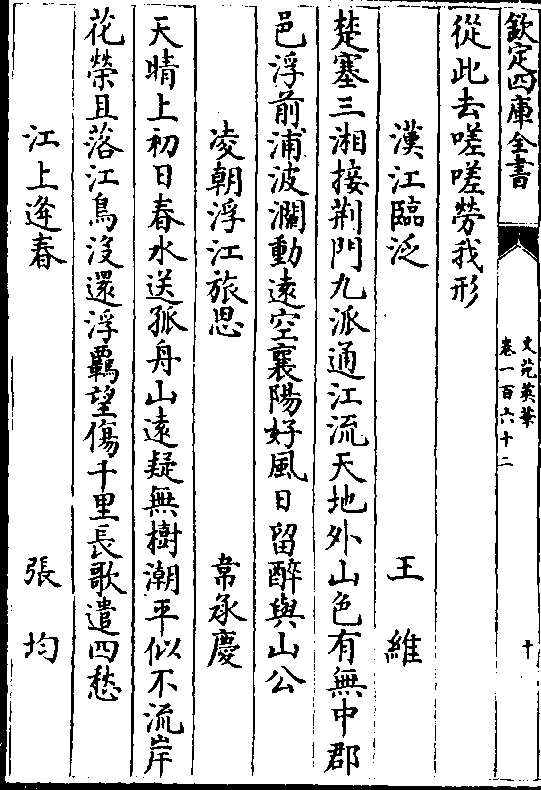 欽定四庫全書
文苑英華
卷一百六十二
十
從此去嗟嗟勞我形
漢江臨泛 王維
楚塞三湘接荆門九派通江流天地外山色有無中郡
邑浮前浦波瀾動遠空襄陽好風日留醉與山公
凌朝浮江旅思 韋承慶
天晴上初日春水送孤舟山遠疑無樹潮平似不流岸
花榮且落江鳥没還浮羈望傷千里長歌遣四愁
江上逢春 張均